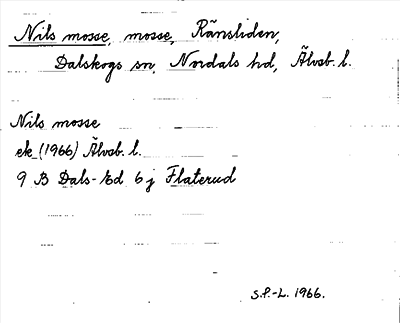 Nils mosse, mosse, Ränsliden,
Dalskogs sn, Nordals hd, Älvsb. l.
Nils mosse
ek (1966) Älvsb. l.
9 B Dals-Ed 6 j Flaterud
S.P.-L. 1966.